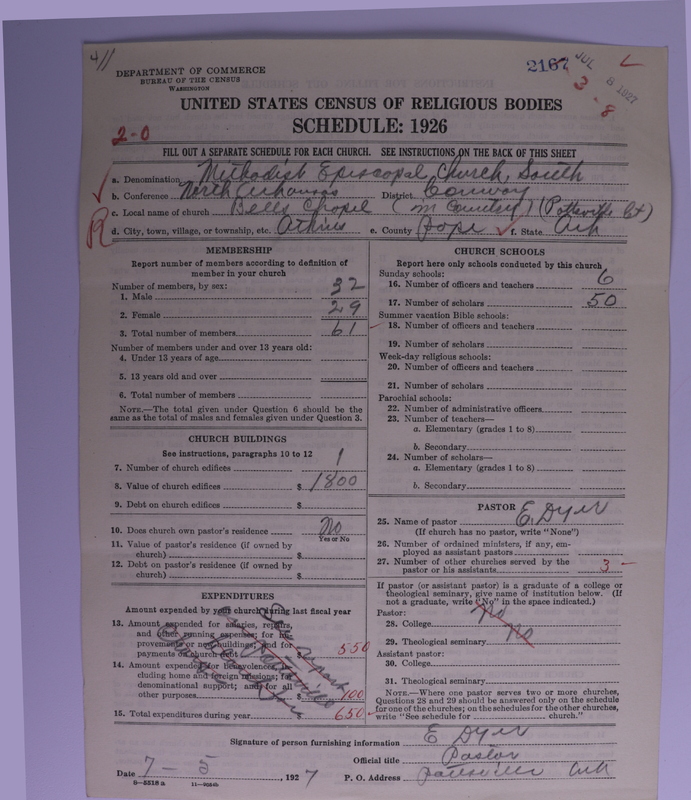 4//
DEPARTMENT OF COMMERCE
BUREAU OF THE CENSUS
WASHINGTON
2167
JUL 8 1927
3-8
UNITED STATES CENSUS OF RELIGIOUS BODIES
SCHEDULE: 1926
2-0
FILL OUT A SEPARATE SCHEDULE FOR EACH CHURCH. SEE INSTRUCTIONS ON THE BACK OF THIS SHEET
a. Denomination Methodist Episcopal Church, South
b. Conference North Arkansas District Conway
c. Local name of church Bells Chapel (in Country) (Pottsville Ct)
R d. City, town, village, or township, etc. Atkins e. County Pope f. State Ark
MEMBERSHIP
Report number of members according to definition of
member in your church
Number of members, by sex:
1. Male 32
2. Female 29
3. Total number of members 61
Number of members under and over 13 years old:
4. Under 13 years of age
5. 13 years old and over
6. Total number of members
NOTE.—The total given under Question 6 should be the
same as total of males and females given under Question 3.
CHURCH BUILDINGS
See instructions, paragraphs 10 to 12
7. Number of church edifices 1
8. Value of church edifices $ 1800
9. Debt on church edifices $
10. Does church own pastor's residence No
Yes or No
11. Value of pastor's residence (if owned by
church) $
12. Debt on pastor's residence (if owned by
church) $
EXPENDITURES
Amount expended by your church during last fiscal year
13. Amount expended for salaries, repairs,
and other running expenses; for im-
provements or new buildings; and for
payments on church debt $ 550
14. Amount expended for benevolences, in-
cluding home and foreign missions; for
denominational support; and for all
other purposes $ 100
15. Total expenditures during year $ 650
CHURCH SCHOOLS
Report here only schools conducted by this church
Sunday schools:
16. Number of officers and teachers 6
17. Number of scholars 50
Summer vacation Bible schools:
18. Number of officers and teachers
19. Number of scholars
Week-day religious schools:
20. Number of officers and teachers
21. Number of scholars
Parochial schools:
22. Number of administrative officers
23. Number of teachers—
a. Elementary (grades 1 to 8)
b. Secondary
24. Number of scholars—
a. Elementary (grades 1 to 8)
b. Secondary
PASTOR
25. Name of pastor E. Dyer
(If church has no pastor, write "None")
26. Number of ordained ministers, if any, em-
ployed as assistant pastors
27. Number of other churches served by the
pastor or his assistants 3
If pastor (or assistant pastor) is a graduate of a college or
theological seminary, give name of institution below. (If
not a graduate, write "No" in the space indicated.)
Pastor:
28. College No
29. Theological seminary No
Assistant pastor:
30. College
31. Theological seminary
NOTE.—Where one pastor serves two or more churches,
Questions 28 and 29 should be answered only on the schedule
for one of the churches; on the schedules for the other churches,
write "See schedule for church."
Signature of person furnishing information E Dyer
Official title Pastor
Date 7-5, 1927 P. O. Address Pottsville Ark
6—5518 a 11—9054b